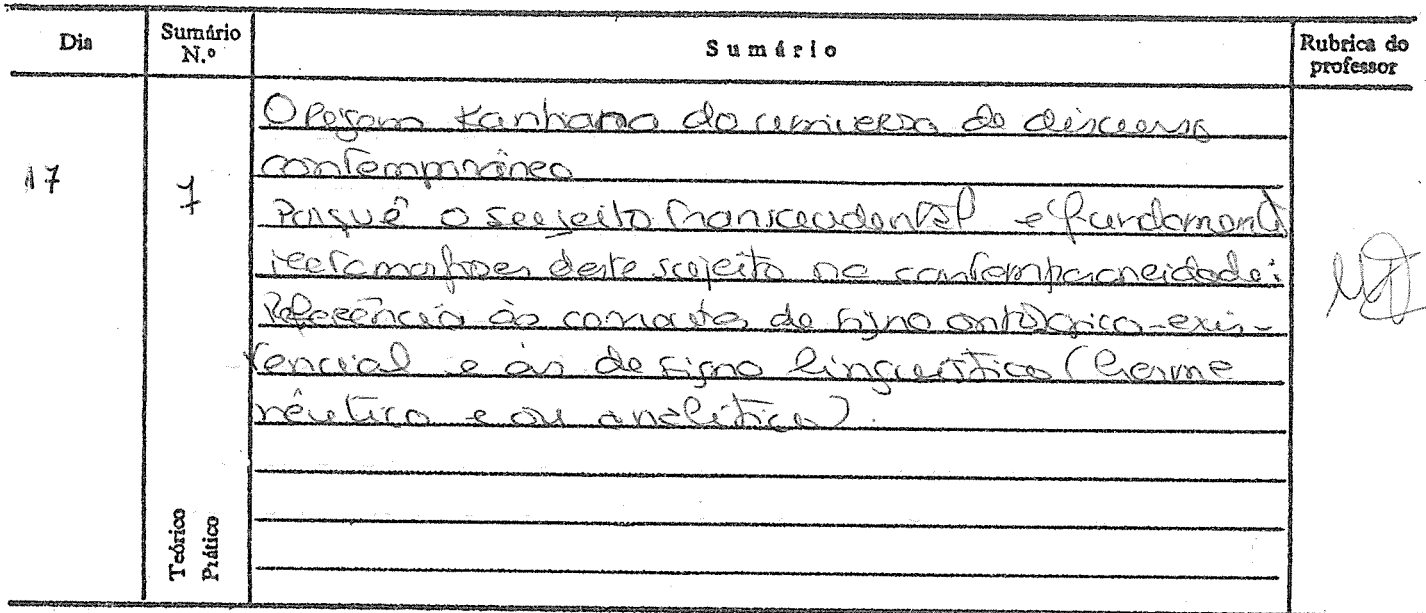 Dia
Sumário N.º
Sumário
Rubrica do professor
17
7
O kantiano do universo do discurso
contemporâneo
Porquê o sujeito transcendental e fundamental
metamorfoses deste sujeito na contemporaneidade:
Referência às correntes de signo ontológico-exis-
tencial e às de signo linguístico (herme
nêutico e ou analítico).
Teórico
Prático